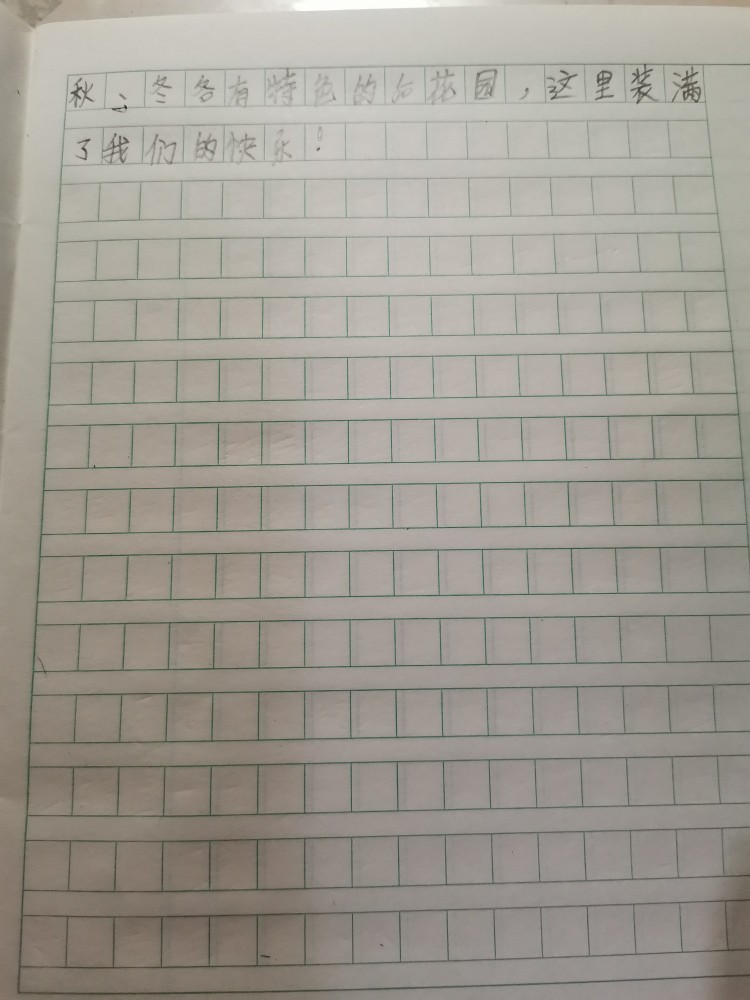 秋、冬各有特色的后花园，这里装满
了我们的快乐！